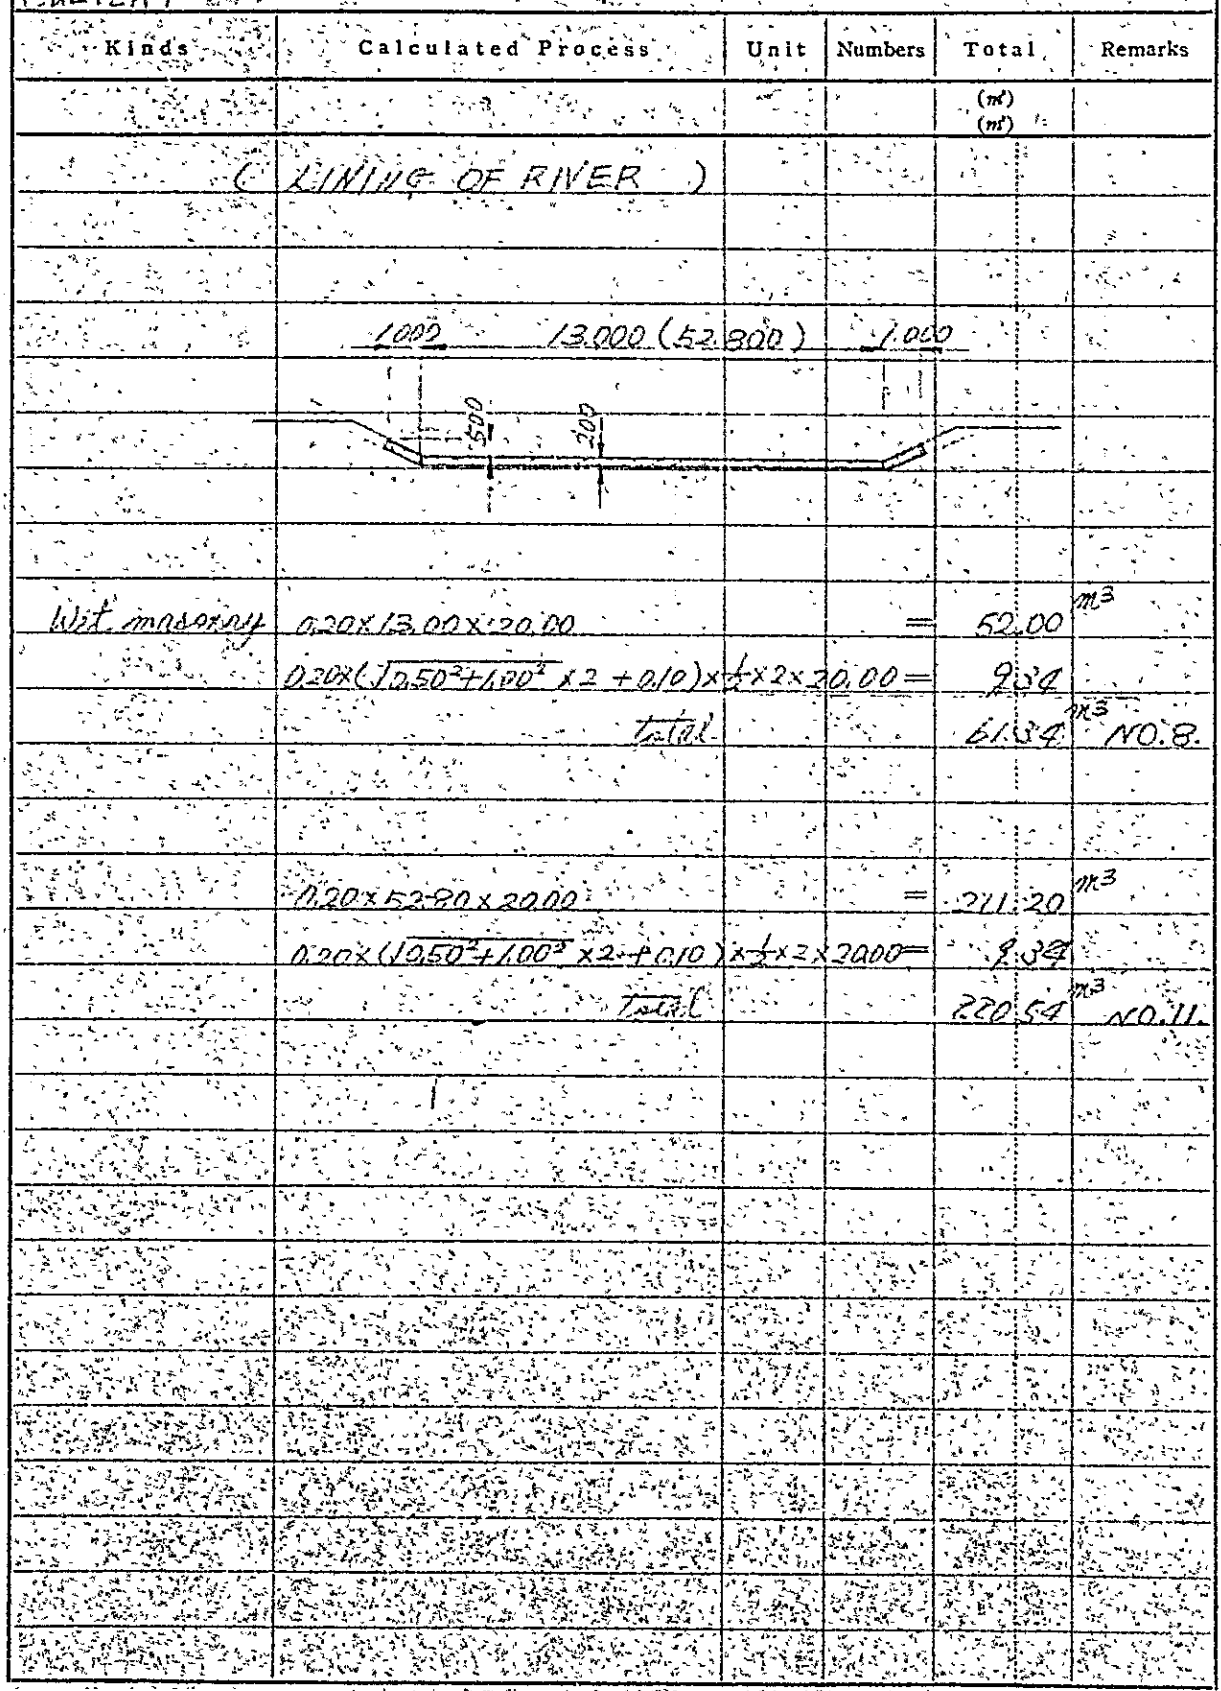 Kinds Calculated Process Unit Numbers Total Remarks
(m²)
(m³)
( LINING OF RIVER )
1.000 13.000 (52.800) 1.000
500 200
Wet masonry 0.20×13.00×20.00 = 52.00 m³
0.20×(√0.50²+1.00² ×2 +0.10)×½×2×20.00= 9.34
total 61.34 m³ NO.8.
0.20×52.80×20.00 = 211.20 m³
0.20×(√0.50²+1.00² ×2+0.10)×½×2×20.00= 9.34
Total 220.54 m³ NO.11.